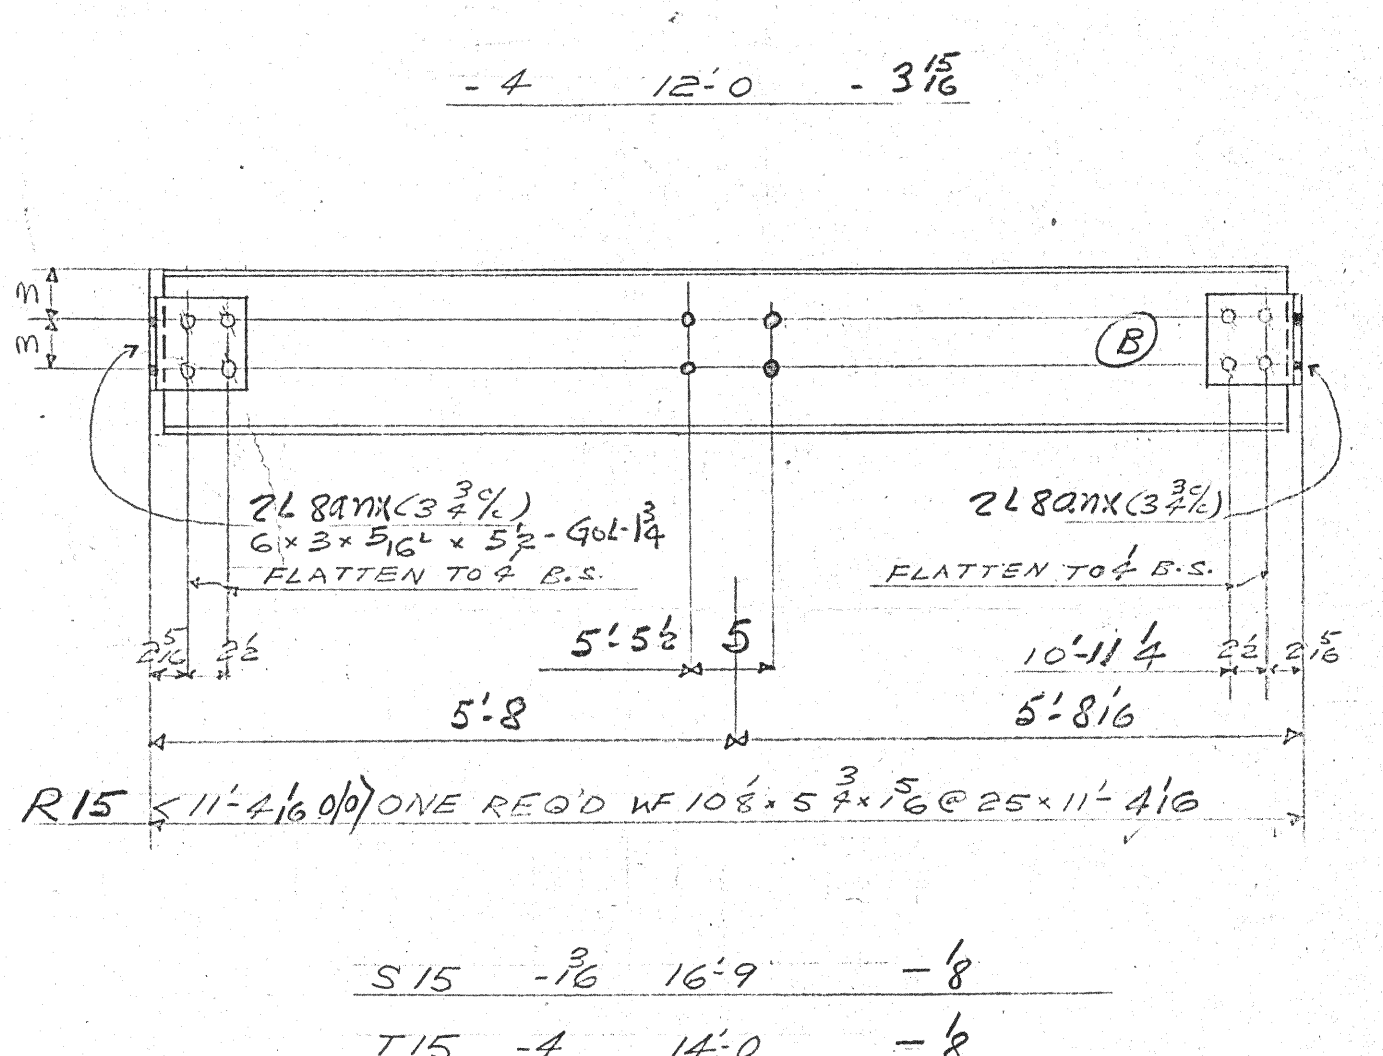 - 4 12'-0 - 3 15/16
n
n
B
2L 8anx (3 3/4 c/c)
6 x 3 x 5/16 L x 5 1/2 - GOL-1 3/4
FLATTEN TO 4' B.S.
2L 8anx (3 3/4 c/c)
FLATTEN TO 4' B.S.
2 5/16 2 1/2 5'-5 1/2 5 10'-11 1/4 2 1/2 2 5/16
5'-8 5'-8 1/16
R15 < 11'-4 1/16 o/o) ONE REQ'D WF 10 1/8 x 5 3/4 x 15/16 @ 25 x 11'-4 1/16
S15 -3/16 16'-9 - 1/8
T15 -4 14'-0 - 1/8